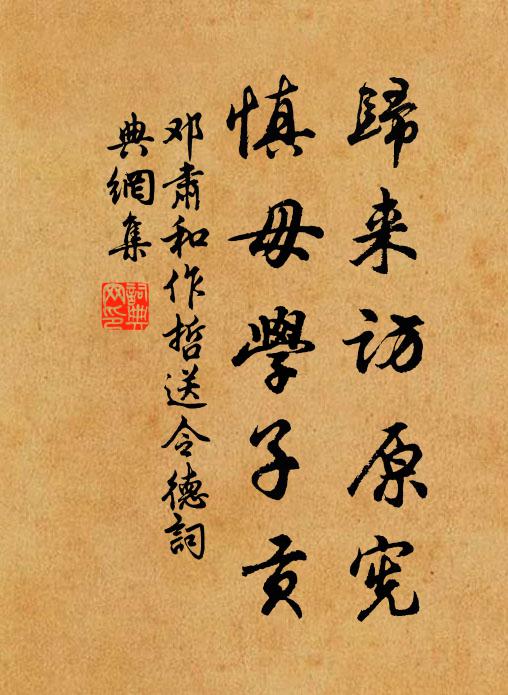 歸来访原宪
慎毋學子贡
邓肃和作哲送令德詞
典網集
詞典网印